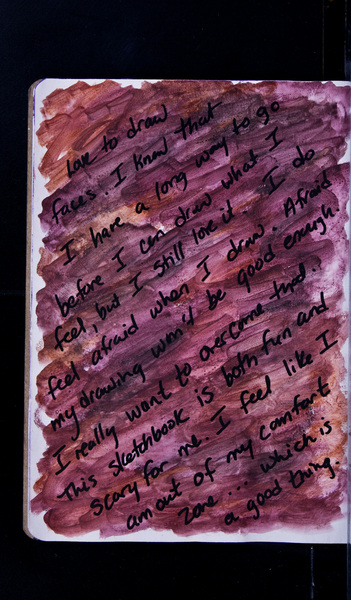 love to draw
faces. I know that
I have a long way to go
before I can draw what I
feel, but I still love it. I do
feel afraid when I draw. Afraid
my drawing won't be good enough.
I really want to overcome that.
This sketchbook is both fun and
scary for me. I feel like I
am out of my comfort
zone ... which is
a good thing.